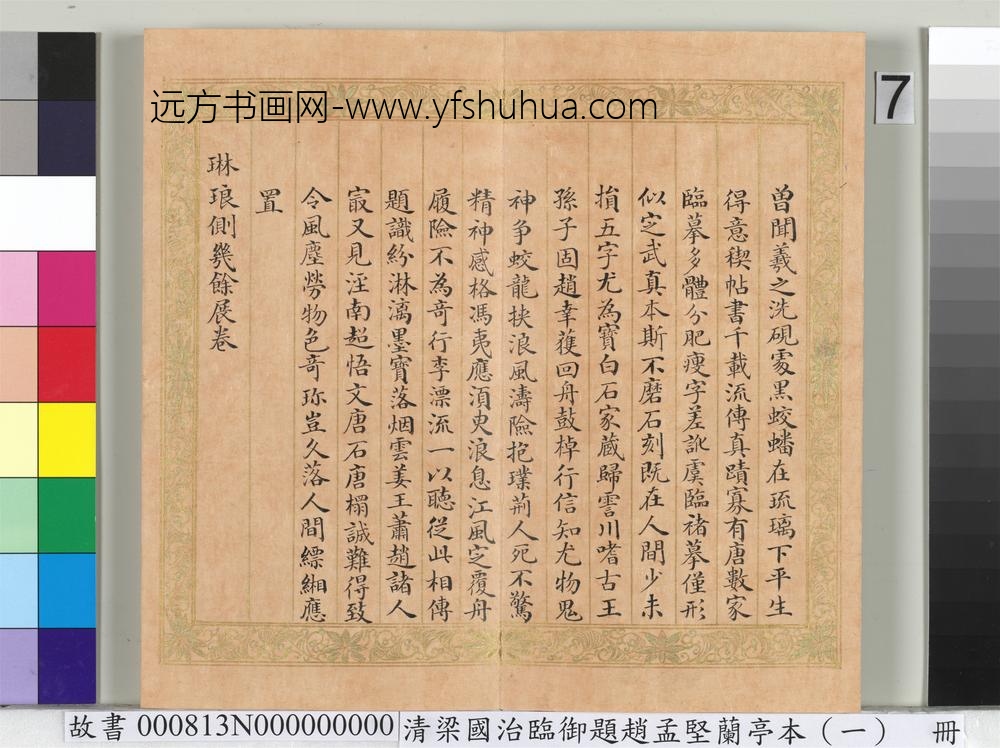 远方书画网-www.yfshuhua.com
7
曾聞羲之洗硯處黑蛟蟠在琉璃下平生
得意禊帖書千載流傳真蹟寡有唐數家
臨摹多體分肥瘦字差訛虞臨褚摹僅形
似定武真本斯不磨石刻既在人間少未
損五字尤為寶白石家藏歸霅川嗜古王
孫子固趙幸獲回舟鼓棹行信知尤物鬼
神爭蛟龍挾浪風濤險抱璞荆人死不驚
精神感格馮夷應須臾浪息江風定覆舟
履險不為奇行李漂流一以聽從此相傳
題識紛淋漓墨寶落烟雲姜王蕭趙諸人
㝡又見汪南超悟文唐石唐榻誠難得致
令風塵勞物色奇珎豈久落人間縹緗應
置
琳琅側幾餘展卷
故書 000813N000000000 清梁國治臨御題趙孟堅蘭亭本（一） 冊